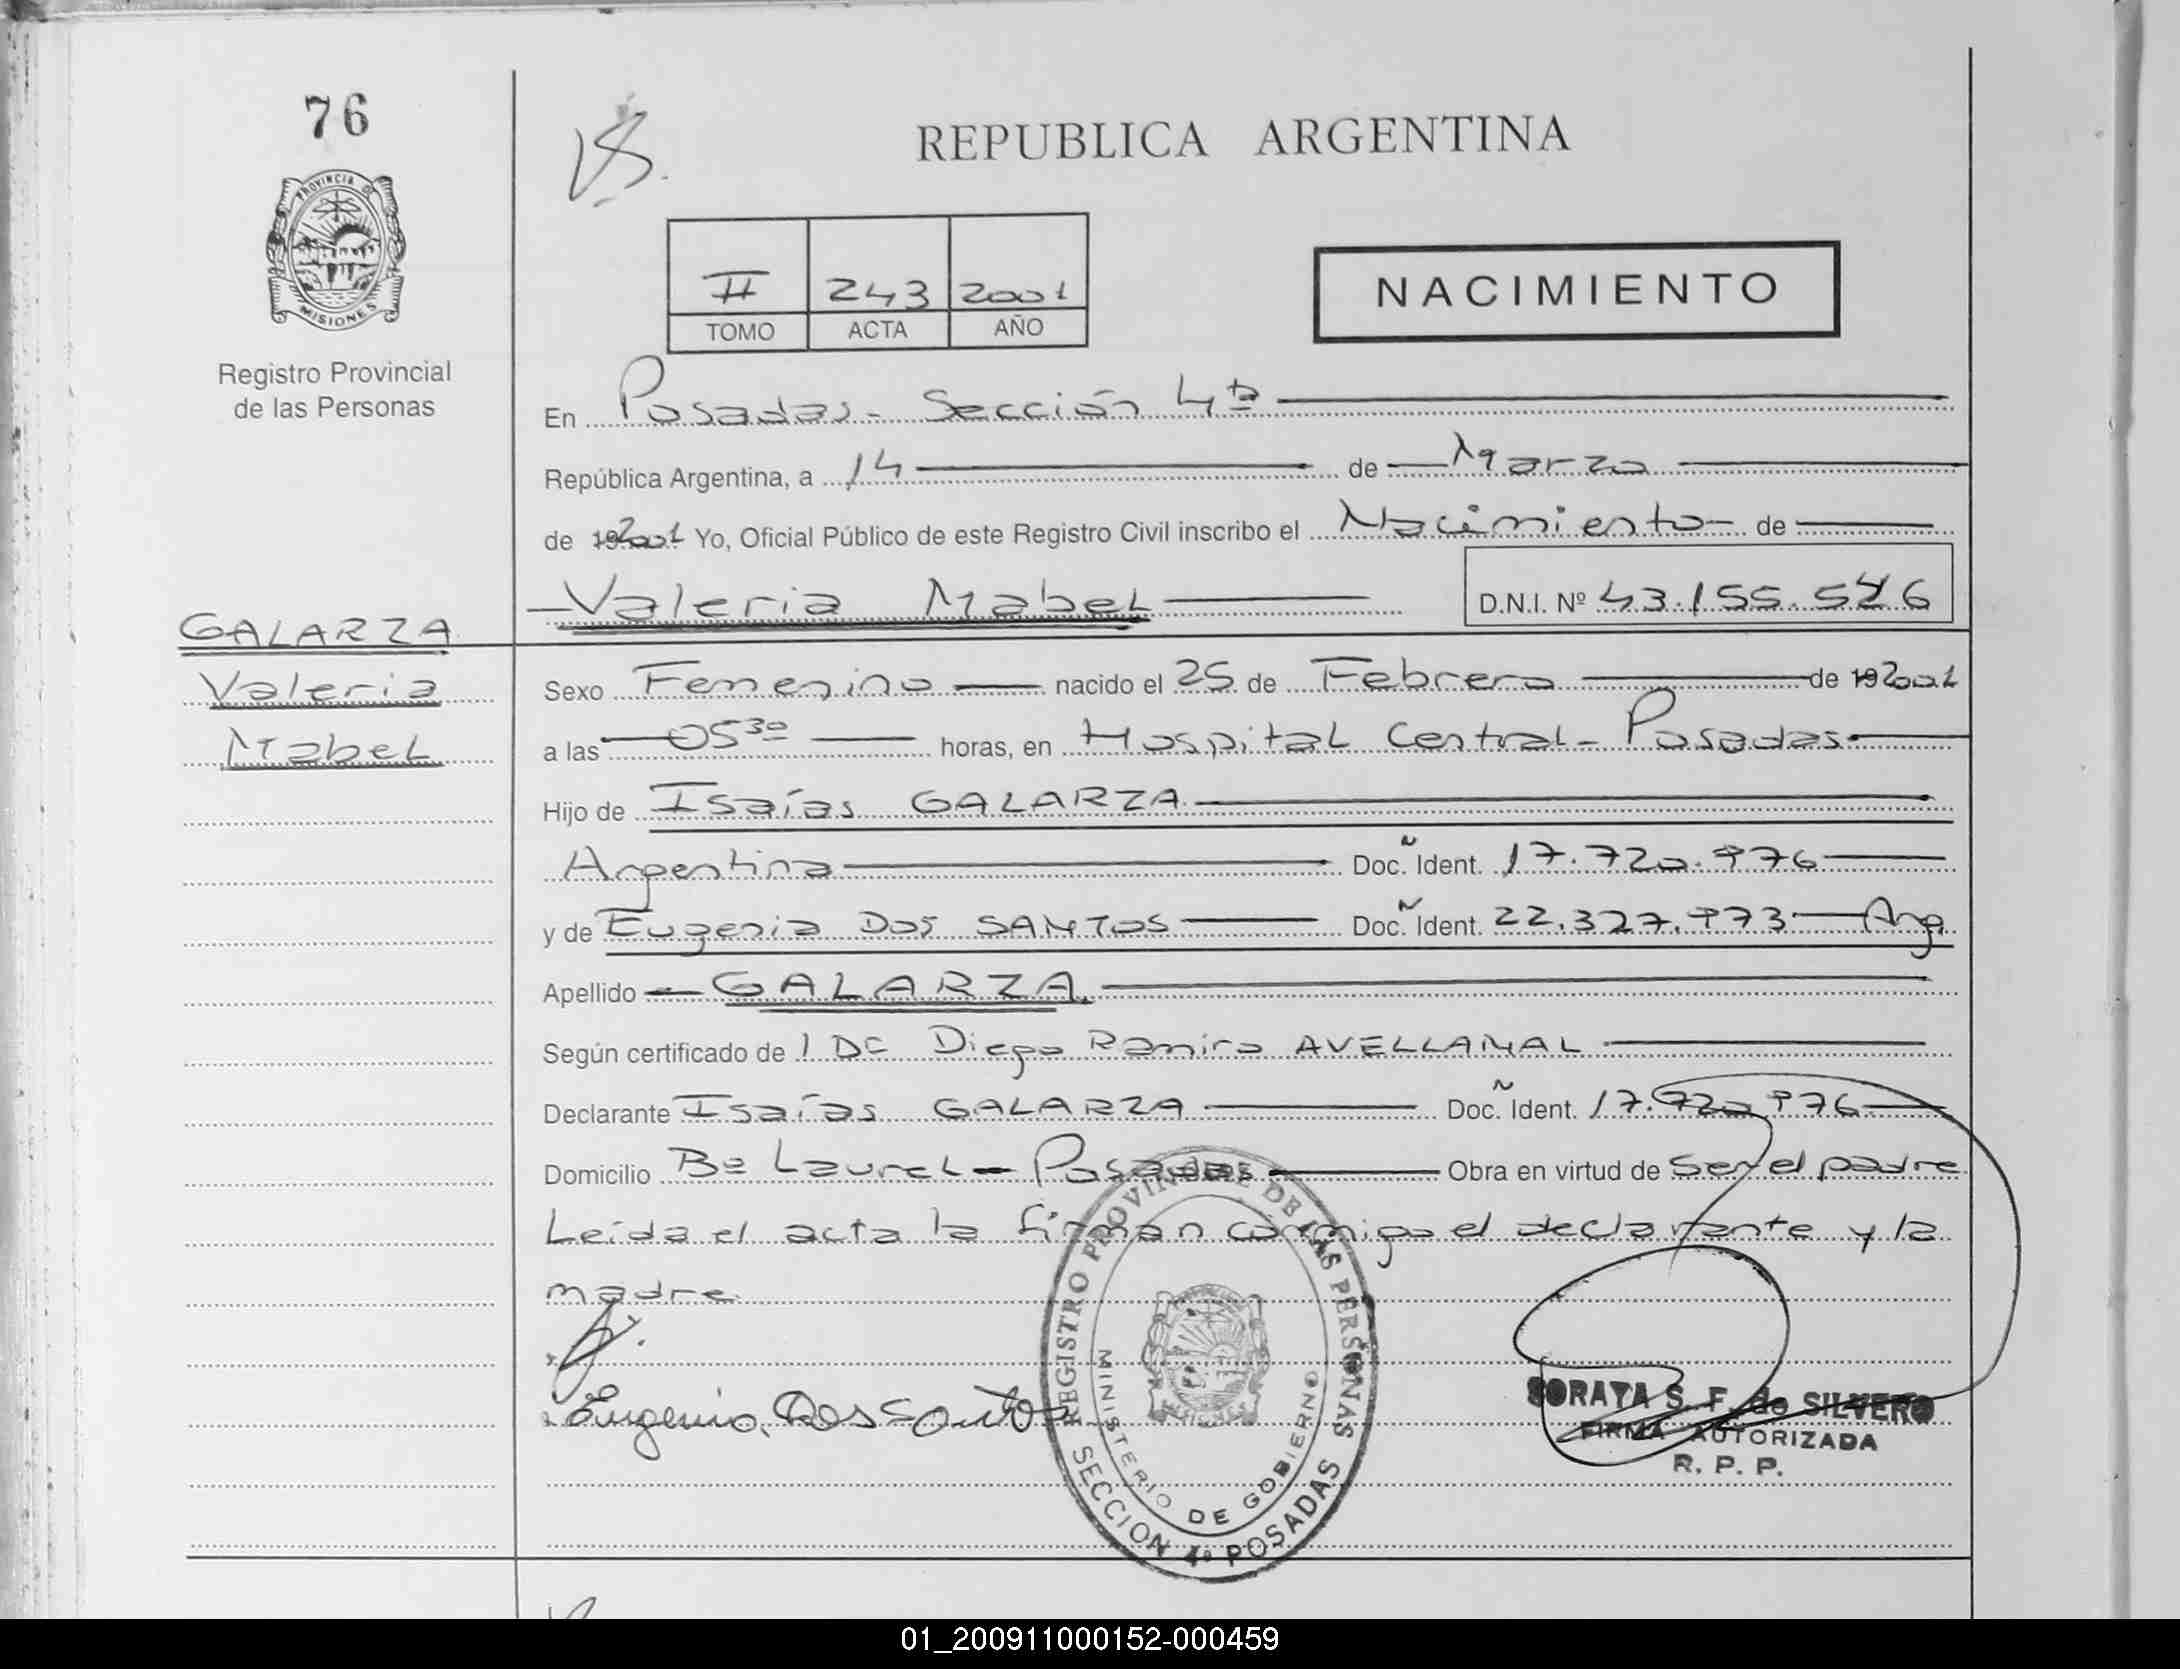 76
PROVINCIA DE
MISIONES
Registro Provincial
de las Personas
REPUBLICA ARGENTINA
II 243 2001
TOMO ACTA AÑO
NACIMIENTO
En Posadas - Sección 4ta
República Argentina, a 14 de Marzo
de 19 2001 Yo, Oficial Público de este Registro Civil inscribo el Nacimiento de
Valeria Mabel D.N.I. Nº 43.155.526
GALARZA
Valeria
Mabel
Sexo Femenino nacido el 25 de Febrero de 19 2001
a las 05 30 horas, en Hospital Central - Posadas
Hijo de Isaías GALARZA
Argentina Doc. Ident. 17.720.976
y de Eugenia DOS SANTOS Doc. Ident. 22.327.973 Arg.
Apellido GALARZA
Según certificado de 1 DC Diego Ramiro AVELLANAL
Declarante Isaías GALARZA Doc. Ident. 17.720.976
Domicilio Bº Laurel - Posadas Obra en virtud de ser el padre
Leída el acta la firman conmigo el declarante y la
madre.
Eugenia Dos Santos
REGISTRO PROVINCIAL DE LAS PERSONAS
MINISTERIO DE GOBIERNO
SECCION 4º POSADAS
SORAYA S. F. de SILVERO
FIRMA AUTORIZADA
R. P. P.
01_200911000152-000459